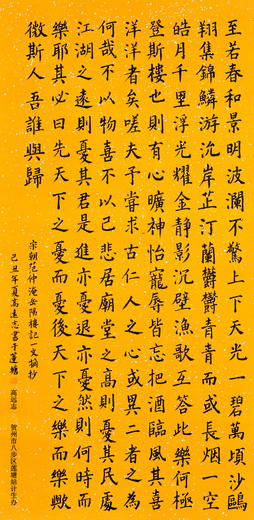 至若春和景明波瀾不驚上下天光一碧萬頃沙鷗
翔集錦鱗游沉岸芷汀蘭鬱鬱青青而或長烟一空
皓月千里浮光耀金静影沉壁漁歌互答此樂何極
登斯樓也則有心曠神怡寵辱皆忘把酒臨風其喜
洋洋者矣嗟夫予嘗求古仁人之心或異二者之為
何哉不以物喜不以己悲居廟堂之高則憂其民處
江湖之遠則憂其君是進亦憂退亦憂然則何時而
樂耶其必曰先天下之憂而憂後天下之樂而樂歟
微斯人吾誰與歸
宗朝范仲淹岳陽樓記一文摘抄
己丑年夏高遠志書于蓮塘
高远志 贺州市八步区莲塘镇计生办